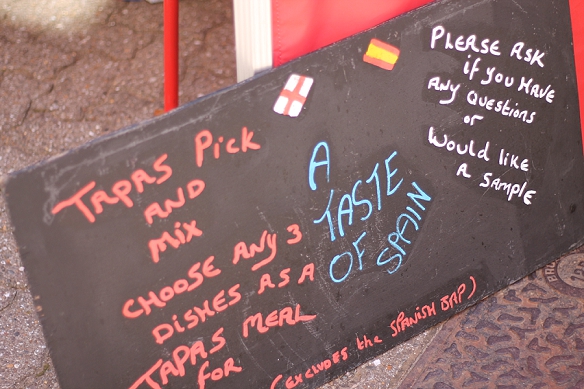 TAPAS Pick
AND
Mix
CHOOSE ANY 3
DISHES AS A
TAPAS MEAL
FOR
(EXCLUDES the SPANISH BAP)
A
TASTE
OF SPAIN
PLEASE ASK
if you HAVE
ANY QUESTIONS
or
Would like
A SAMPLE